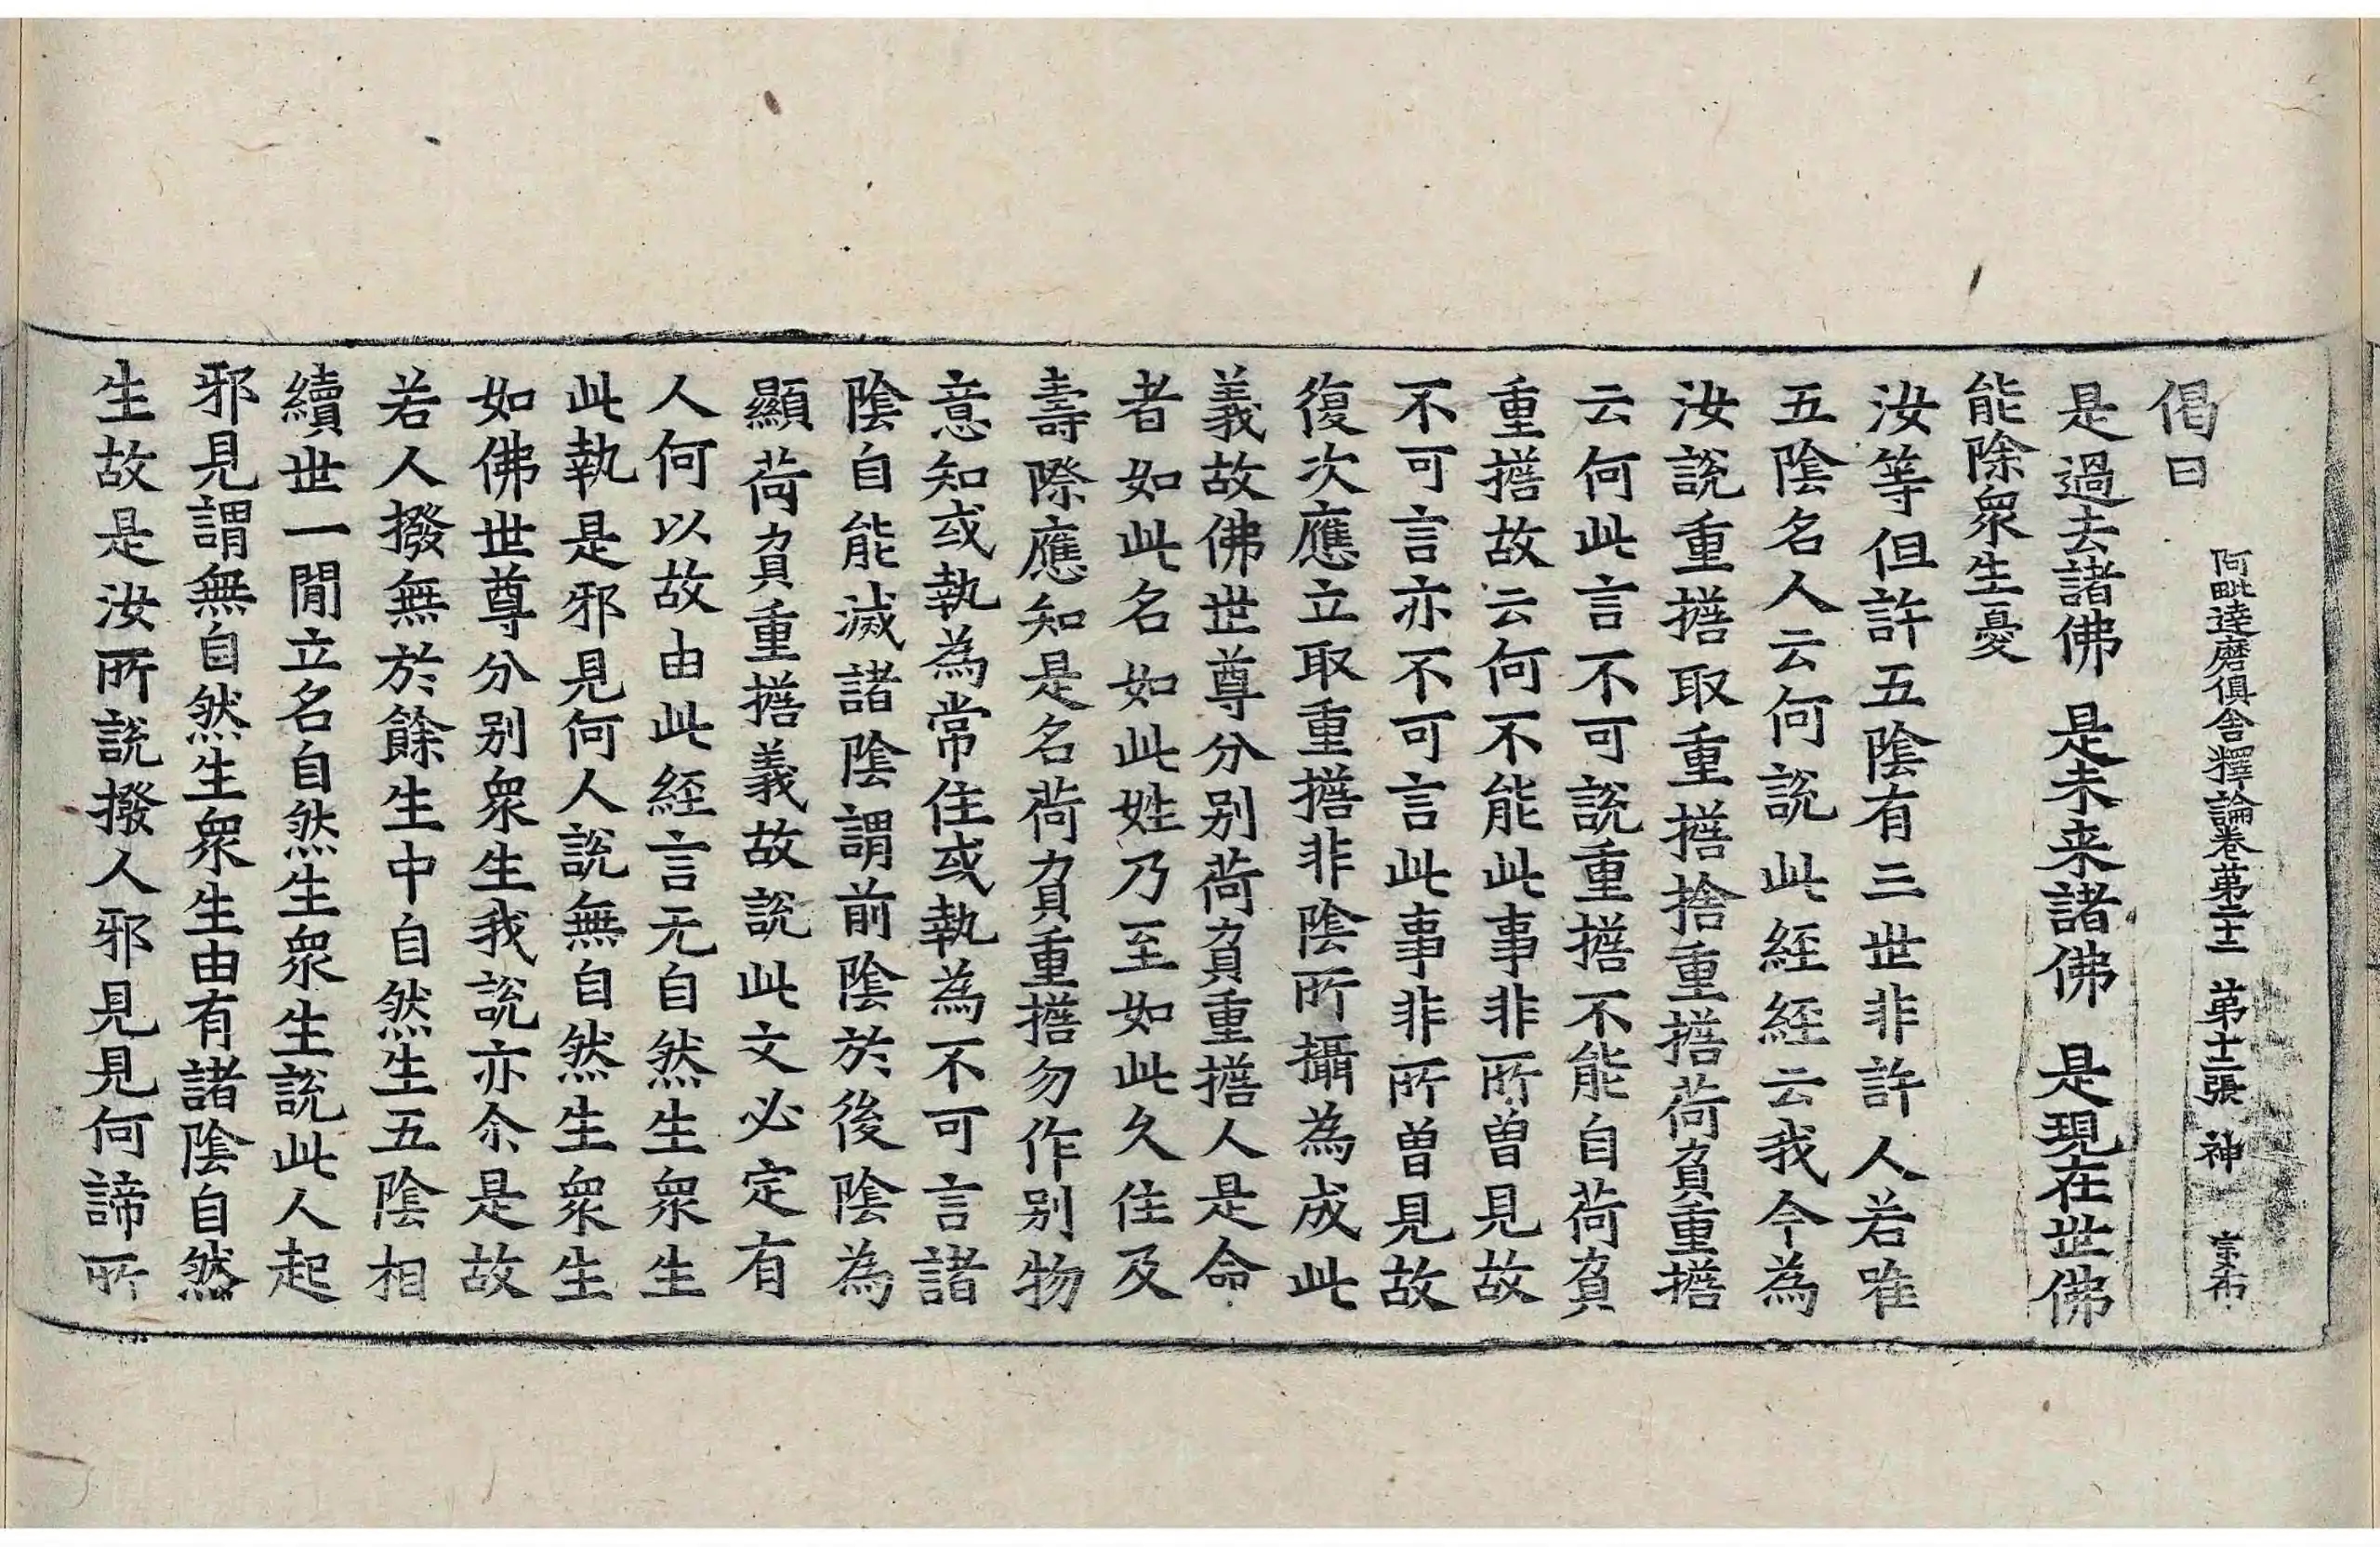 阿毗達磨俱舍釋論卷第二十二 第十二張 神 宗布
偈曰
是過去諸佛 是未来諸佛 是現在世佛
能除衆生憂
汝等但許五陰有三世非許人若唯
五陰名人云何說此經經云我今為
汝說重擔取重擔捨重擔荷負重擔
云何此言不可說重擔不能自荷負
重擔故云何不能此事非所曽見故
不可言亦不可言此事非所曽見故
復次應立取重擔非陰所攝為成此
義故佛世尊分別荷負重擔人是命
者如此名如此姓乃至如此久住及
壽際應知是名荷負重擔勿作別物
意知或執為常住或執為不可言諸
陰自能滅諸陰謂前陰於後陰為
顯荷負重擔義故說此文必定有
人何以故由此經言无自然生衆生
此執是邪見何人說無自然生衆生
如佛世尊分別衆生我說亦尒是故
若人撥無於餘生中自然生五陰相
續世一間立名自然生衆生說此人起
邪見謂無自然生衆生由有諸陰自然
生故是汝所說撥人邪見見何諦所